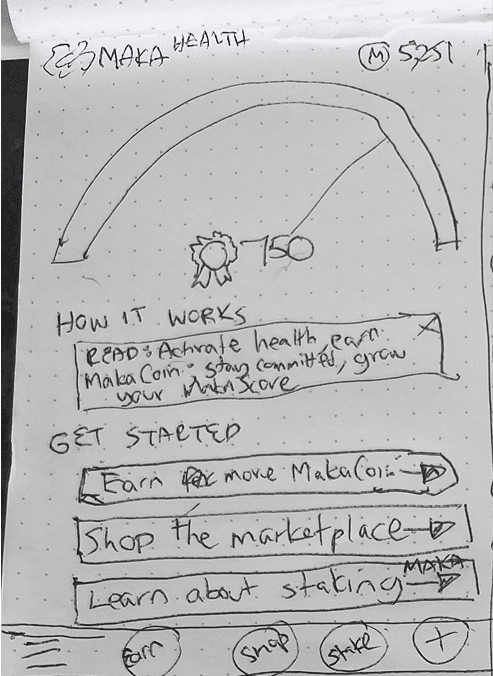 MAKA HEALTH
M 5,251
750
HOW IT WORKS
READ: Activate health, earn
MakaCoin. stay committed, grow
your MakaScore
GET STARTED
Earn for more MakaCoin
Shop the marketplace
Learn about staking MAKA
Earn
Shop
Stake